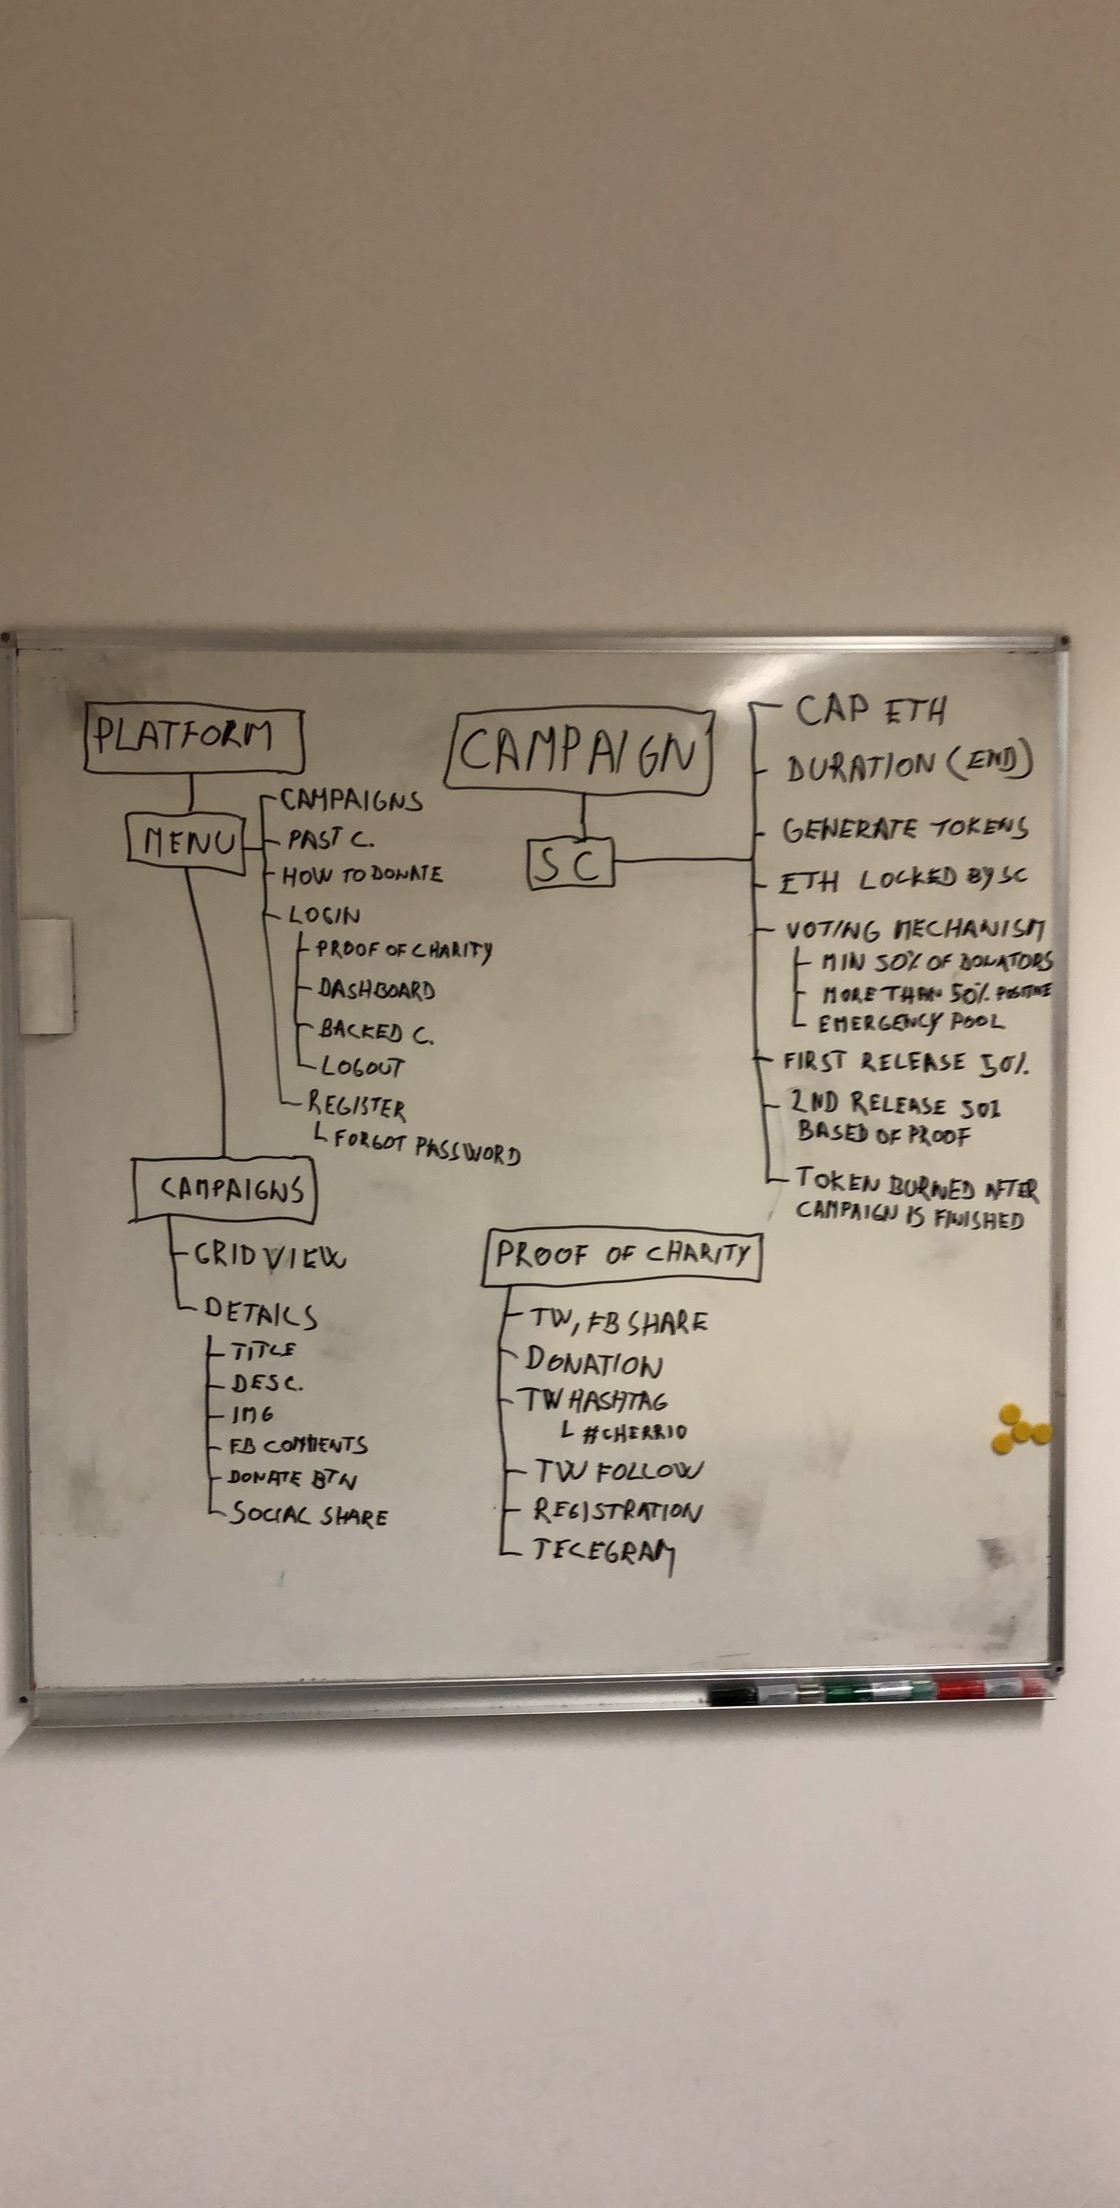 PLATFORM
MENU
CAMPAIGNS
PAST C.
HOW TO DONATE
LOGIN
PROOF OF CHARITY
DASHBOARD
BACKED C.
LOGOUT
REGISTER
FORGOT PASSWORD
CAMPAIGNS
GRID VIEW
DETAILS
TITLE
DESC.
IMG
FB COMMENTS
DONATE BTN
SOCIAL SHARE
CAMPAIGN
SC
CAP ETH
DURATION (END)
GENERATE TOKENS
ETH LOCKED BY SC
VOTING MECHANISM
MIN 50% OF DONATORS
MORE THAN 50% POSITIVE
EMERGENCY POOL
FIRST RELEASE 50%
2ND RELEASE 50%
BASED OF PROOF
TOKEN BURNED AFTER
CAMPAIGN IS FINISHED
PROOF OF CHARITY
TW, FB SHARE
DONATION
TW HASHTAG
#CHERRIO
TW FOLLOW
REGISTRATION
TELEGRAM